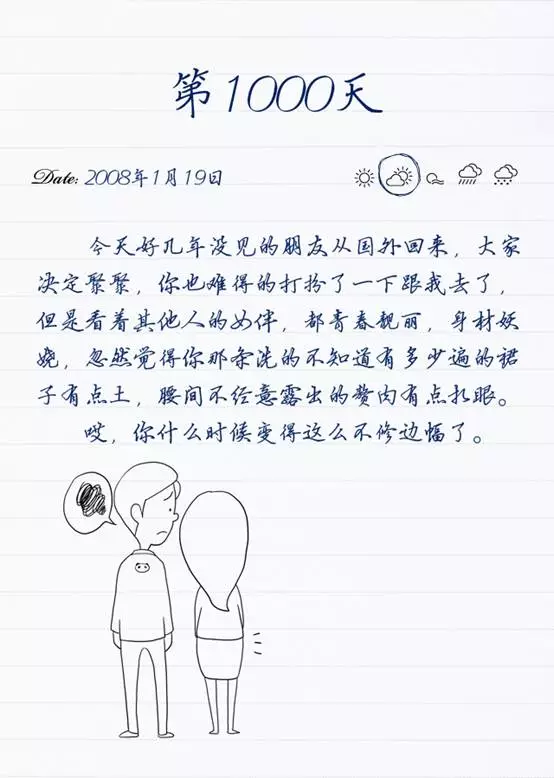 第1000天
Date: 2008年1月19日
今天好几年没见的朋友从国外回来，大家
决定聚聚，你也难得的打扮了一下跟我去了，
但是看着其他人的女伴，都青春靓丽，身材妖
娆，忽然觉得你那条洗的不知道有多少遍的裙
子有点土，腰间不经意露出的赘肉有点扎眼。
哎，你什么时候变得这么不修边幅了。